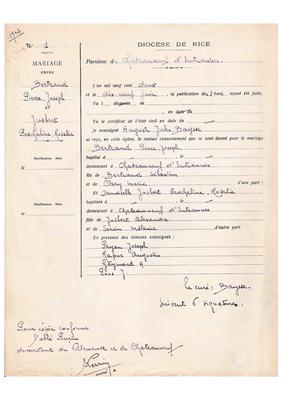 1902
N° 1
MARIAGE
ENTRE
Bertrand
Pierre Joseph
et
Joubert
Rosalie
Notification faite
à
le
Notification faite
à
le
DIOCÈSE DE NICE
Paroisse d' Chateauneuf d'Entraunes
L'an mil neuf cent deux
et le dix neuf juin, la publication des 3 bans, ayant été faite,
Vu l
en date du
Vu le certificat de l'état civil en date du
je soussigné Auguste Jules
ai, en cette église, reçu le mutuel consentement que se sont donné pour le mariage
Bertrand Pierre Joseph,
baptisé à le
demeurant à Chateauneuf d'Entraunes
fils de Bertrand Sébastien
et de Marie d'une part ;
Et Demoiselle Joubert Rosalie
baptisée à le
demeurant à Chateauneuf d'Entraunes
fille de Joubert Alexandre
et de Mélanie d'autre part.
En présence des témoins soussignés :
Payan Joseph
Augustin
J.
Le curé :
suivent 6 signatures
Pour copie conforme
l'abbé
desservant de Villeneuve et de Chateauneuf